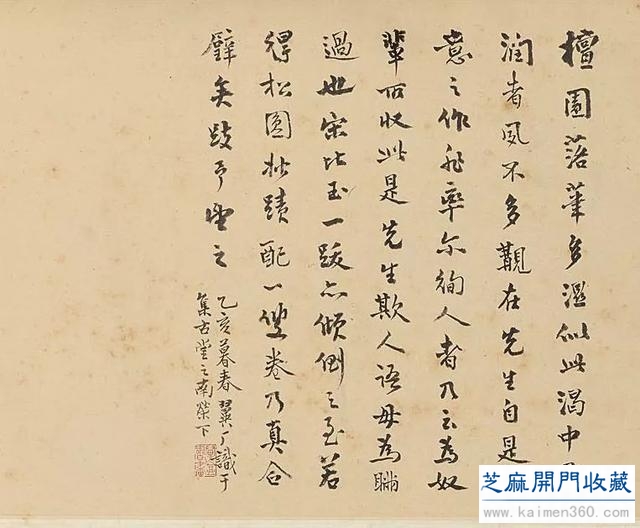 檀園落筆多濕似此渴中
潤者夙不多覯在先生自是
意之作非率尔徇人者乃云為奴
輩所收此是先生欺人語毋為瞞
過也宋比玉一跋亦傾倒之至若
得松圓妙蹟配一雙卷乃真合
璧矣跂予望之
乙亥暮春翼厂識于
集古堂之南榮下
芝麻開門收藏
www.kaimen360.com